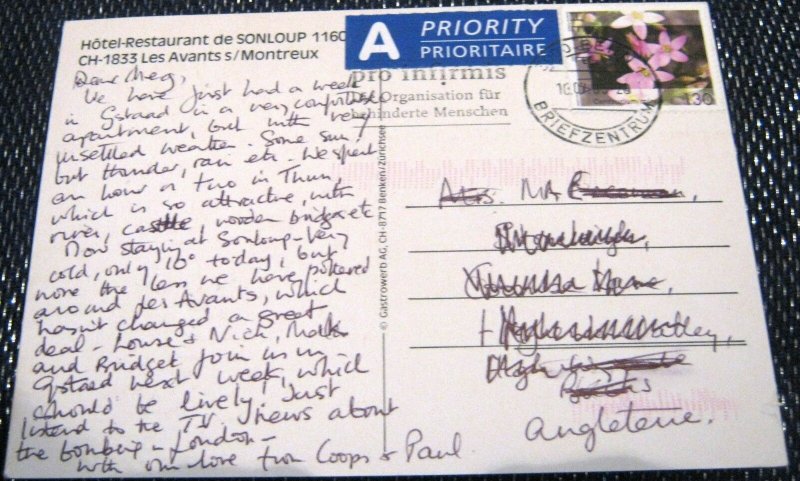 Hôtel-Restaurant de SONLOUP 1160
CH-1833 Les Avants s/Montreux
A PRIORITY
PRIORITAIRE
130
BRIEFZENTRUM
pro infirmis
Organisation für
behinderte Menschen
Dear Meg,
We have just had a week
in Gstaad in a very comfortable
apartment, but with very
unsettled weather. Some sun,
but thunder, rain etc. We spent
an hour or two in Thun,
which is so attractive, with
river, castle wooden bridges etc
Now staying at Sonloup - very
cold, only 10° today, but
none the less we have pottered
around Les Avants, which
hasn't changed a great
deal - Louise & Nick,
and Bridget join us in
Gstaad next week, which
should be lively. Just
listened to the T.V. news about
the bombing - London -
with our love from Coops & Paul
© Gastrowerb AG, CH-8717 Benken/Zürichsee
Mrs. M.A.
Angleterre.